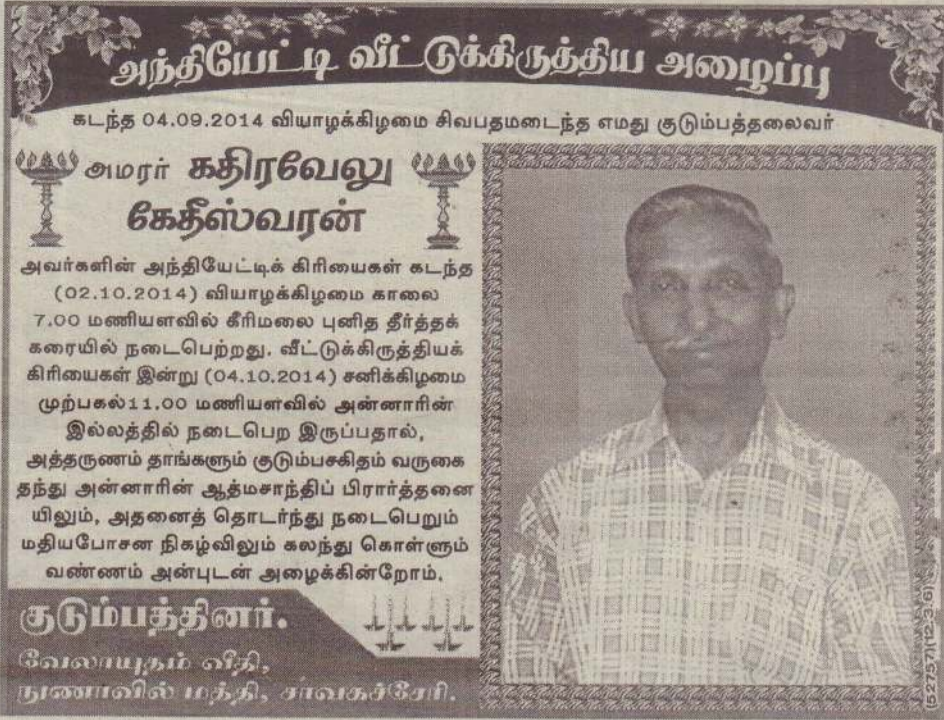 அந்தியேட்டி வீட்டுக்கிருத்திய அழைப்பு
கடந்த 04.09.2014 வியாழக்கிழமை சிவபதமடைந்த எமது குடும்பத்தலைவர்
அமரர் கதிரவேலு
கேதீஸ்வரன்
அவர்களின் அந்தியேட்டிக் கிரியைகள் கடந்த
(02.10.2014) வியாழக்கிழமை காலை
7.00 மணியளவில் கீரிமலை புனித தீர்த்தக்
கரையில் நடைபெற்றது. வீட்டுக்கிருத்தியக்
கிரியைகள் இன்று (04.10.2014) சனிக்கிழமை
முற்பகல்11.00 மணியளவில் அன்னாரின்
இல்லத்தில் நடைபெற இருப்பதால்,
அத்தருணம் தாங்களும் குடும்பசகிதம் வருகை
தந்து அன்னாரின் ஆத்மசாந்திப் பிரார்த்தனை
யிலும், அதனைத் தொடர்ந்து நடைபெறும்
மதியபோசன நிகழ்விலும் கலந்து கொள்ளும்
வண்ணம் அன்புடன் அழைக்கின்றோம்.
குடும்பத்தினர்.
வேலாயுதம் வீதி,
நுணாவில் மத்தி, சாவகச்சேரி.
(52757)(12.3.6)